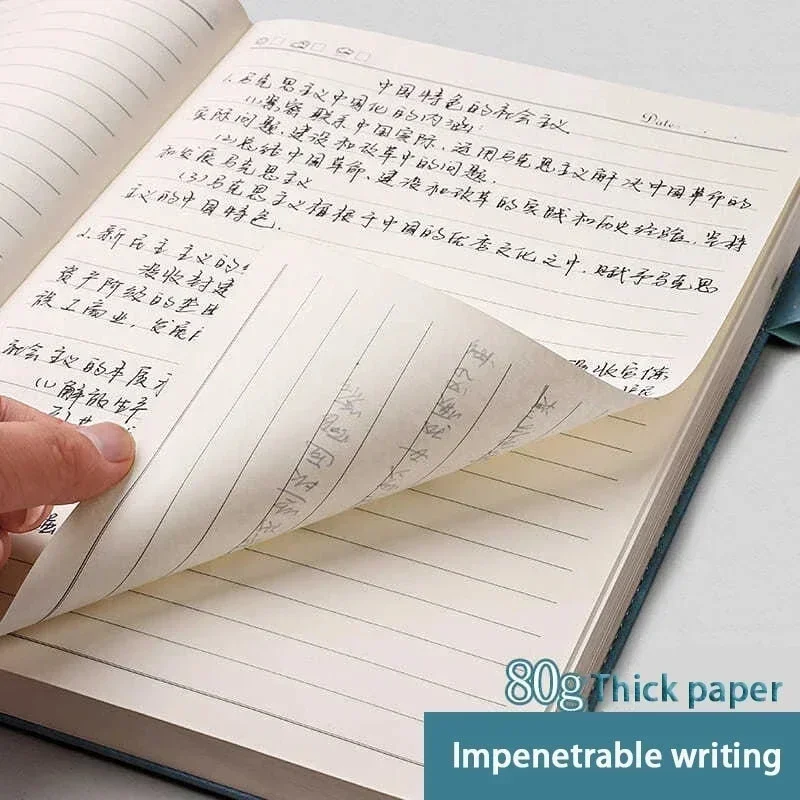 中国特色的社会主义
Date:
1. 马克思主义中国化的内涵:
(1)紧密联系中国实际, 运用马克思主义解决中国革命的
实际问题,建设和改革中的问题.
(2)总结中国革命、建设和改革的实践和历史经验, 坚持
和发展马克思主义
(3)马克思主义植根于中国的优秀文化之中, 赋予马克思
主义的中国特色.
2. 新民主主义的
没收封建
资产阶级的
族工商业, 发展
社会主义的本
(1) 解放生产
80g Thick paper
Impenetrable writing